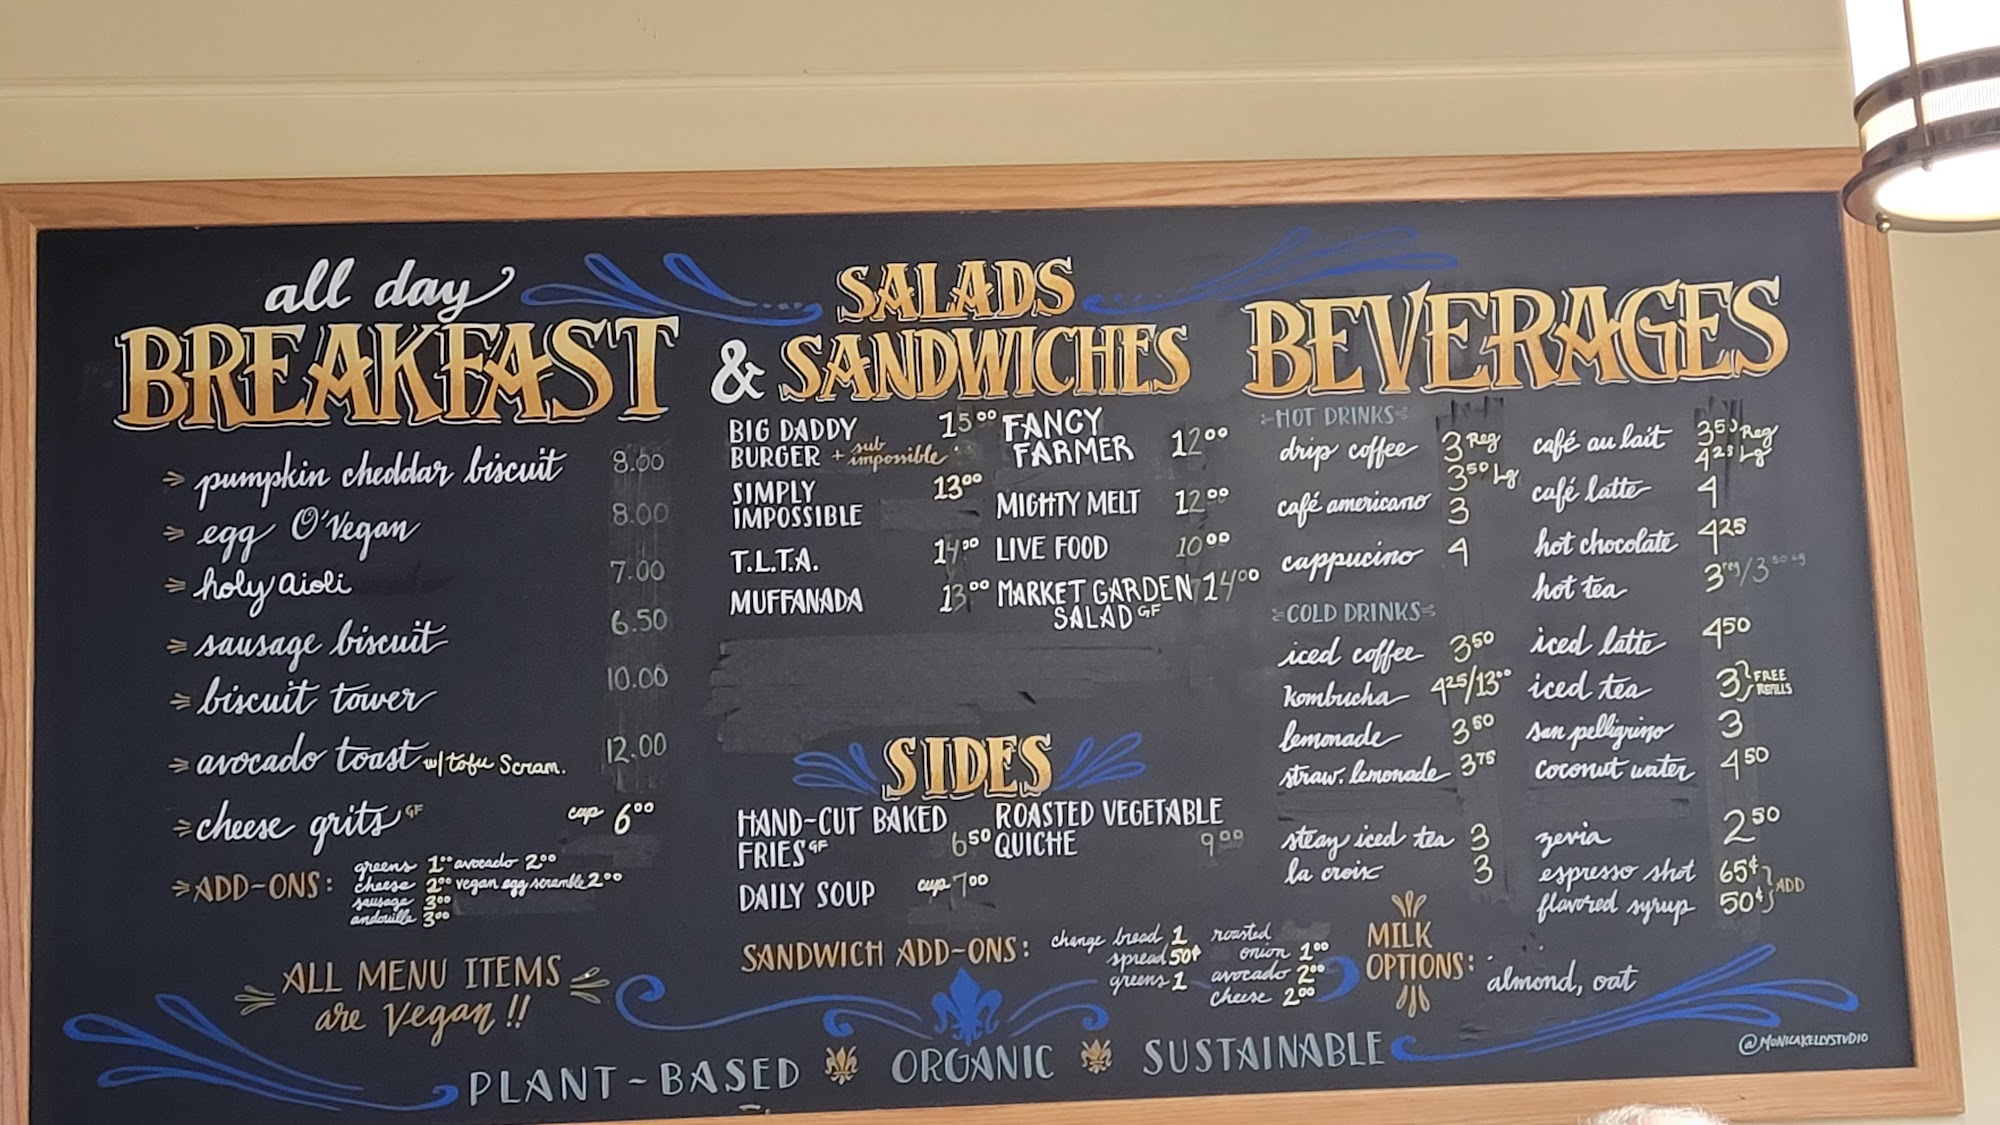 all day
BREAKFAST
pumpkin cheddar biscuit 8.00
egg O'Vegan 8.00
holy aioli 7.00
sausage biscuit 6.50
biscuit tower 10.00
avocado toast w/tofu Scram. 12.00
cheese grits GF cup 6⁰⁰
ADD-ONS:
greens 1⁰⁰ avocado 2⁰⁰
cheese 2⁰⁰ vegan egg scramble 2⁰⁰
sausage 3⁰⁰
andouille 3⁰⁰
ALL MENU ITEMS
are Vegan!!
SALADS
& SANDWICHES
BIG DADDY 15⁰⁰
BURGER + sub impossible
SIMPLY 13⁰⁰
IMPOSSIBLE
T.L.T.A. 14⁰⁰
MUFFANADA 13⁰⁰
FANCY
FARMER 12⁰⁰
MIGHTY MELT 12⁰⁰
LIVE FOOD 10⁰⁰
MARKET GARDEN 14⁰⁰
SALAD GF
SIDES
HAND-CUT BAKED
FRIES GF 6⁵⁰
DAILY SOUP cup 7⁰⁰
ROASTED VEGETABLE
QUICHE 9⁰⁰
SANDWICH ADD-ONS:
change bread 1
spread 50¢
greens 1
roasted
onion 1⁰⁰
avocado 2⁰⁰
cheese 2⁰⁰
BEVERAGES
HOT DRINKS
drip coffee 3 Reg
3⁵⁰ Lg
café americano 3
cappucino 4
café au lait 3⁵⁰ Reg
4²⁵ Lg
café latte 4
hot chocolate 4²⁵
hot tea 3 reg/3⁵⁰ Lg
COLD DRINKS
iced coffee 3⁵⁰
kombucha 4²⁵/13⁰⁰
lemonade 3⁵⁰
straw. lemonade 3⁷⁵
steay iced tea 3
la croix 3
iced latte 4⁵⁰
iced tea 3 FREE
REFILLS
san pelligrino 3
coconut water 4⁵⁰
zevia 2⁵⁰
espresso shot 65¢
flavored syrup 50¢
ADD
MILK
OPTIONS:
almond, oat
PLANT-BASED ORGANIC SUSTAINABLE
@MONICAKELLYSTUDIO